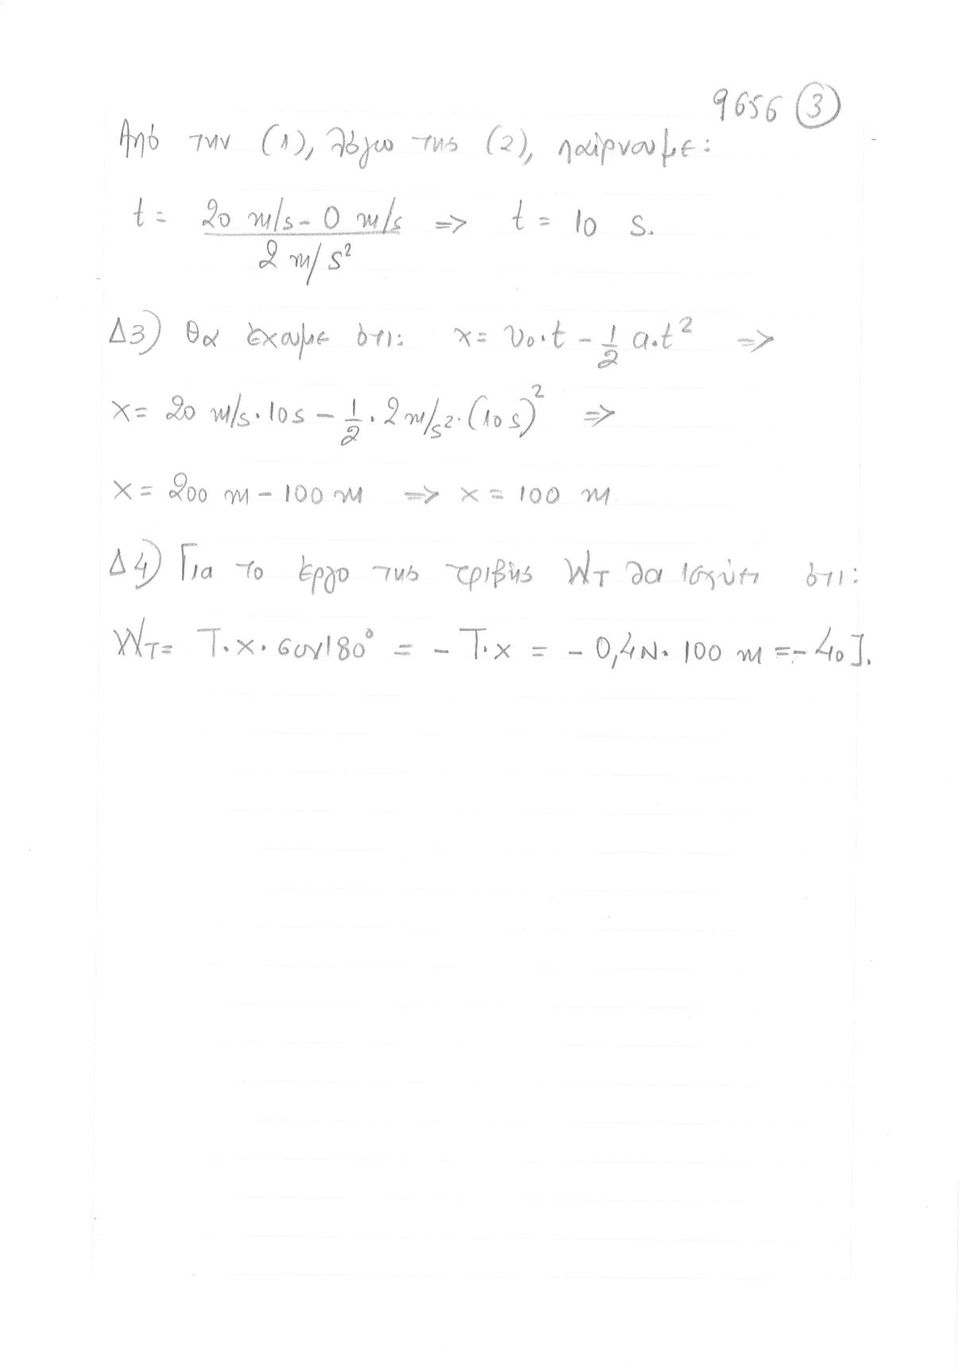 9656 ③
Από την (1), λόγω της (2), παίρνουμε:
t = (20 m/s - 0 m/s) / (2 m/s²) => t = 10 s.
Δ3) Θα έχουμε ότι: x = υ₀·t - 1/2 a·t² =>
x = 20 m/s · 10s - 1/2 · 2 m/s² · (10 s)² =>
x = 200 m - 100 m => x = 100 m
Δ4) Για το έργο της τριβής W_T θα ισχύει ότι:
W_T = T·x·συν180° = - T·x = - 0,4N · 100 m = - 40 J.